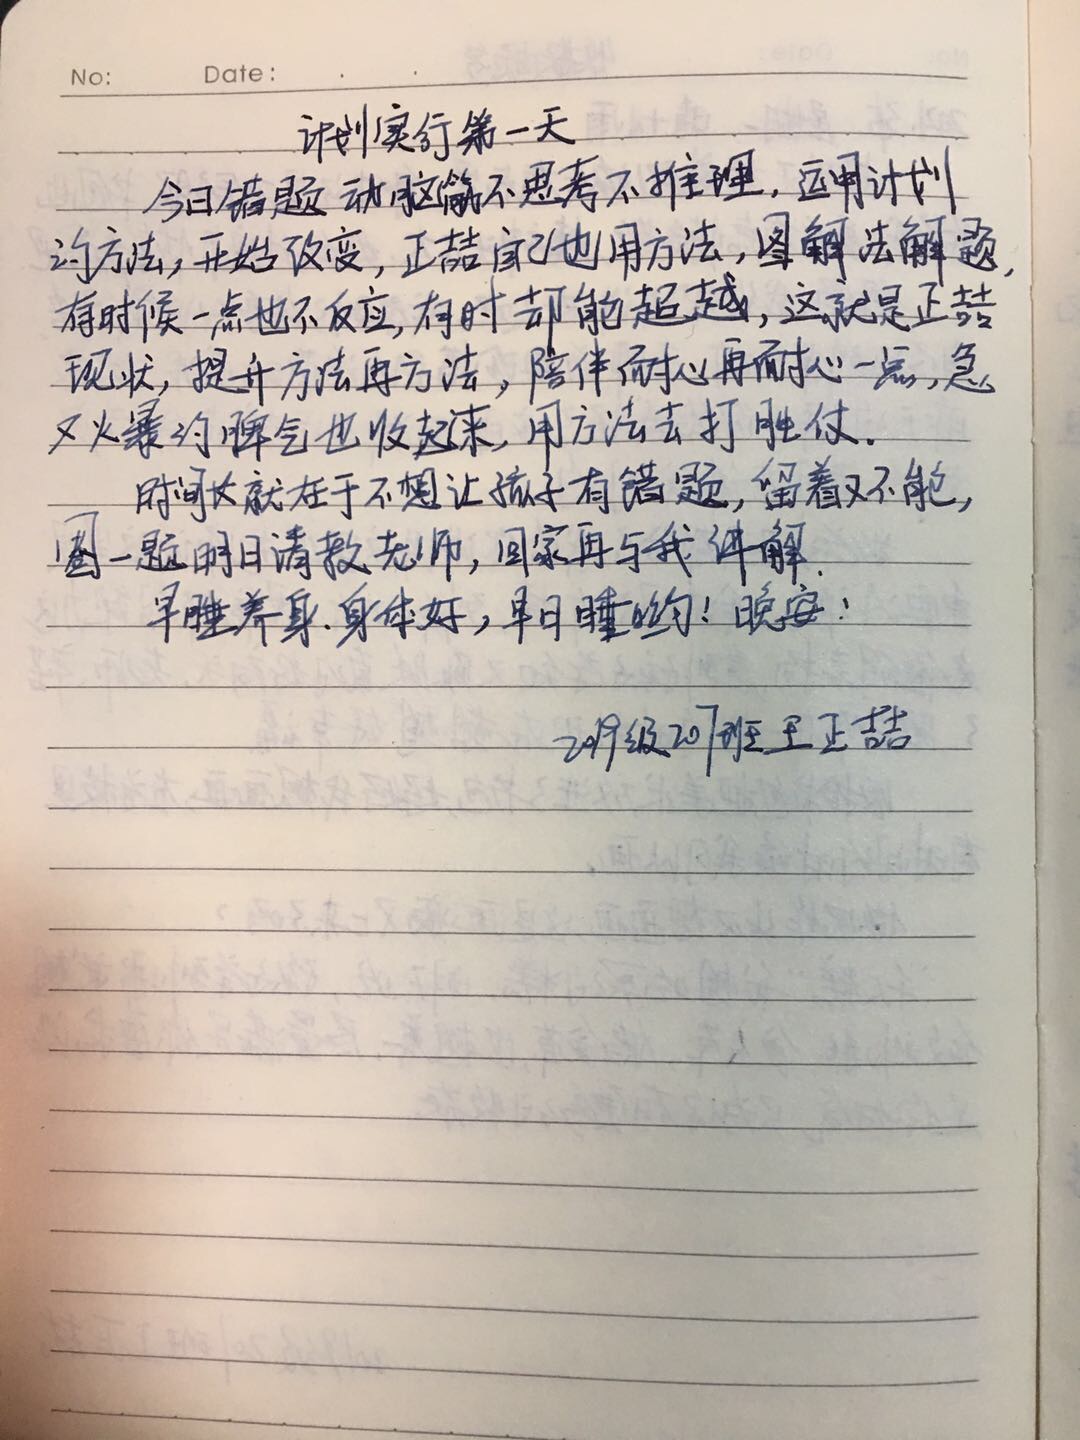 No: Date:
计划实行第一天
今日错题动脑筋不思考不推理，运用计划
的方法，开始改变，正喆自己也用方法，图解法解题，
有时候一点也不反应，有时却能超越，这就是正喆
现状，提升方法再方法，陪伴耐心再耐心一点，急
又火暴的脾气也收起来，用方法去打胜仗.
时间长就在于不想让孩子有错题，留着又不能，
圈一题明日请教老师，回家再与我讲解.
早睡养身.身体好，早日睡的约！晚安！
2019级207班王正喆